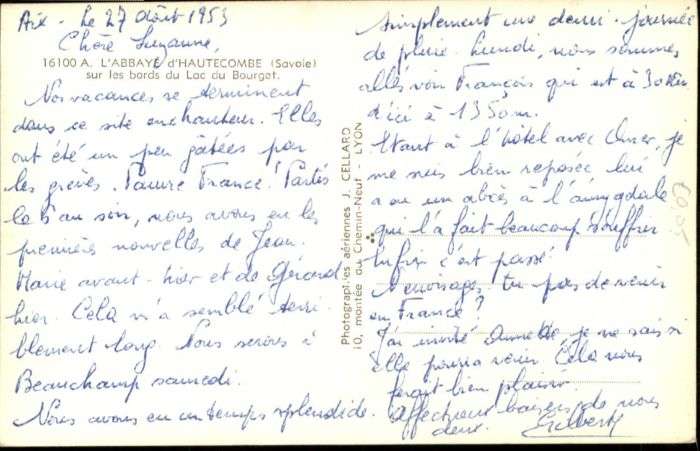 Aix - Le 27 Août 1953
Chère Suzanne,
16100 A. L'ABBAYE d'HAUTECOMBE (Savoie)
sur les bords du Lac du Bourget.
Nos vacances se terminent
dans ce site enchanteur. Elles
ont été un peu gâtées par
les grèves. Pauvre France! Partis
le 5 au soir, nous avons eu les
premières nouvelles de Jean
Marie avant-hier et de Gérard
hier. Cela m'a semblé terri-
blement long. Nous serons à
Beauchamp samedi.
Nous avons eu un temps splendide.
Photographies aériennes J. CELLARD
10, montée du Chemin-Neuf - LYON
simplement une demi-journée
de pluie. Lundi, nous sommes
allés voir François qui est à 30 km
d'ici à 1350 m.
Etant à l'hôtel avec Omer, je
me suis bien reposée, lui
a eu un abcès à l'amygdale
qui l'a fait beaucoup souffrir
Enfin c'est passé
N'envisages-tu pas de venir
en France?
J'ai invité je ne sais si
elle pourra venir. Cela nous
ferait bien plaisir.
Affectueux baisers de nous
deux.